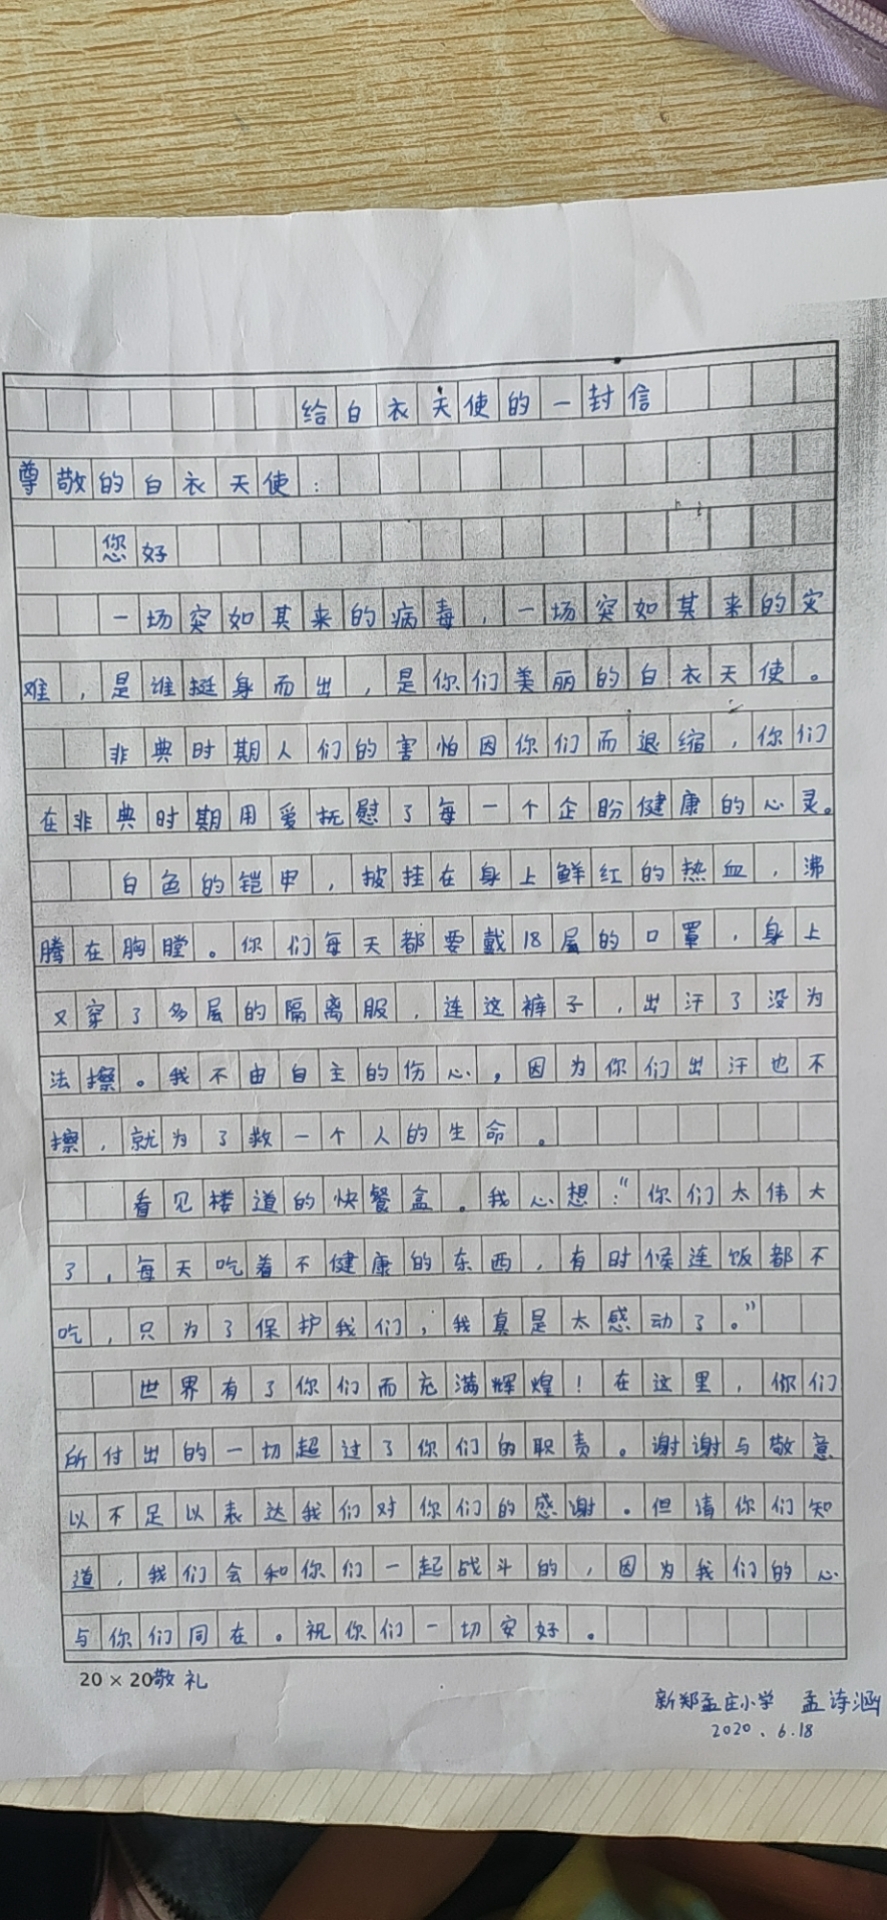 给白衣天使的一封信
尊敬的白衣天使：
您好
一场突如其来的病毒，一场突如其来的灾
难，是谁挺身而出，是你们美丽的白衣天使。
非典时期人们的害怕因你们而退缩，你们
在非典时期用爱抚慰了每一个企盼健康的心灵。
白色的铠甲，披挂在身上鲜红的热血，沸
腾在胸膛。你们每天都要戴18层的口罩，身上
又穿了多层的隔离服，连这裤子，出汗了没为
法擦。我不由自主的伤心，因为你们出汗也不
擦，就为了救一个人的生命。
看见楼道的快餐盒。我心想：“你们太伟大
了，每天吃着不健康的东西，有时候连饭都不
吃，只为了保护我们，我真是太感动了。”
世界有了你们而充满辉煌！在这里，你们
所付出的一切超过了你们的职责。谢谢与敬意
以不足以表达我们对你们的感谢。但请你们知
道，我们会和你们一起战斗的，因为我们的心
与你们同在。祝你们一切安好。
20×20敬礼
新郑孟庄小学 孟诗涵
2020、6.18